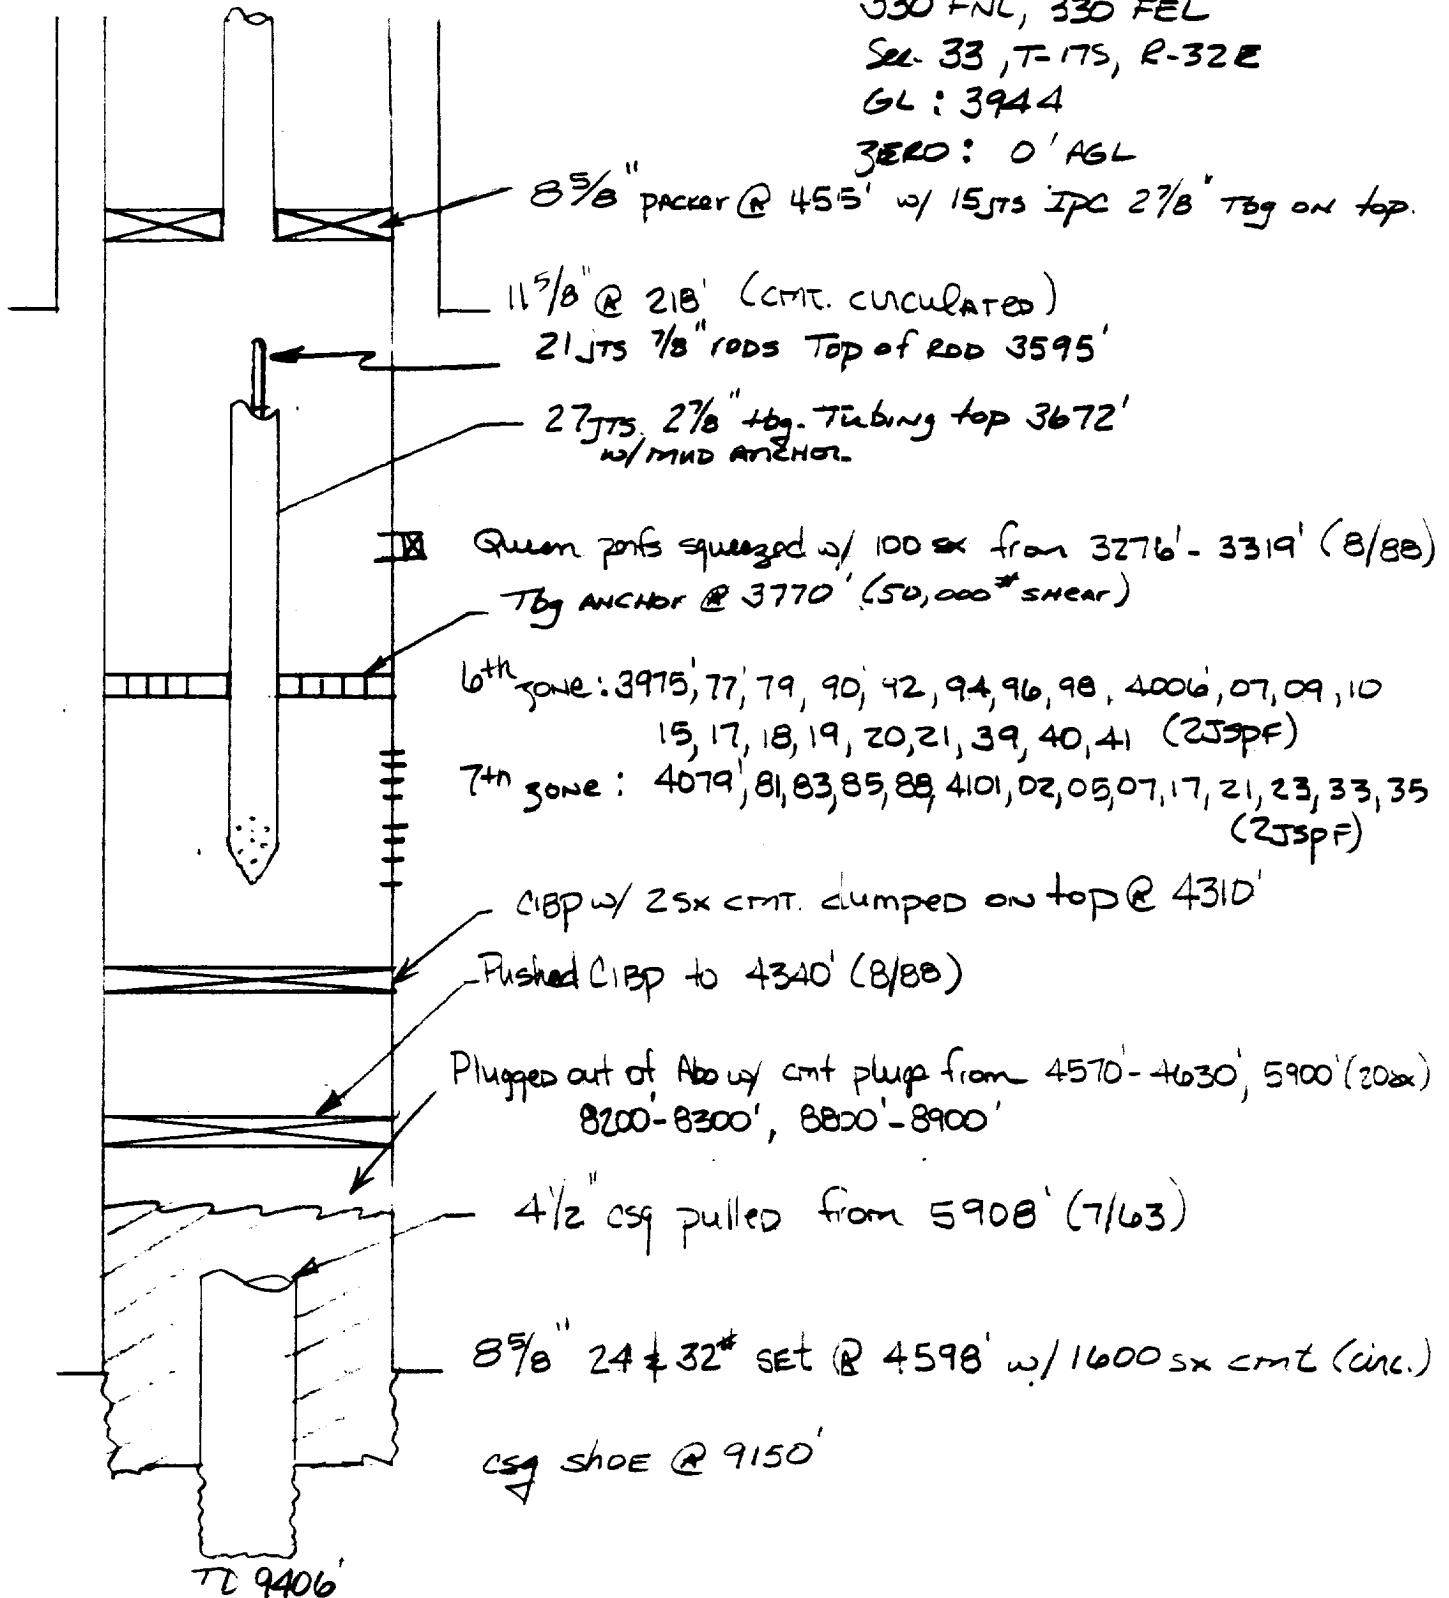 330 FNL, 330 FEL
Sec. 33, T-17S, R-32E
GL: 3944
ZERO: 0' AGL
8 5/8" packer @ 455' w/ 15 JTS IPC 2 7/8" Tbg on top.
11 5/8" @ 218' (CMT. CIRCULATED)
21 JTS 7/8" rods Top of ROD 3595'
27 JTS. 2 7/8" tbg. Tubing top 3672'
w/ MUD ANCHOR.
Queen perfs squeezed w/ 100 sx from 3276'-3319' (8/88)
Tbg ANCHOR @ 3770' (50,000# SHEAR)
6th ZONE: 3975', 77', 79, 90, 92, 94, 96, 98, 4006', 07, 09, 10
15, 17, 18, 19, 20, 21, 39, 40, 41 (2JSPF)
7th ZONE: 4079', 81, 83, 85, 88, 4101, 02, 05, 07, 17, 21, 23, 33, 35
(2JSPF)
CIBP w/ 2 sx cmt. dumped on top @ 4310'
Pushed CIBP to 4340' (8/88)
Plugged out of Abo w/ cmt plugs from 4570'-4630', 5900' (20sx)
8200'-8300', 8800'-8900'
4 1/2" csg pulled from 5908' (7/63)
8 5/8" 24 & 32# SET @ 4598' w/ 1600 sx cmt (circ.)
csg SHOE @ 9150'
9406'